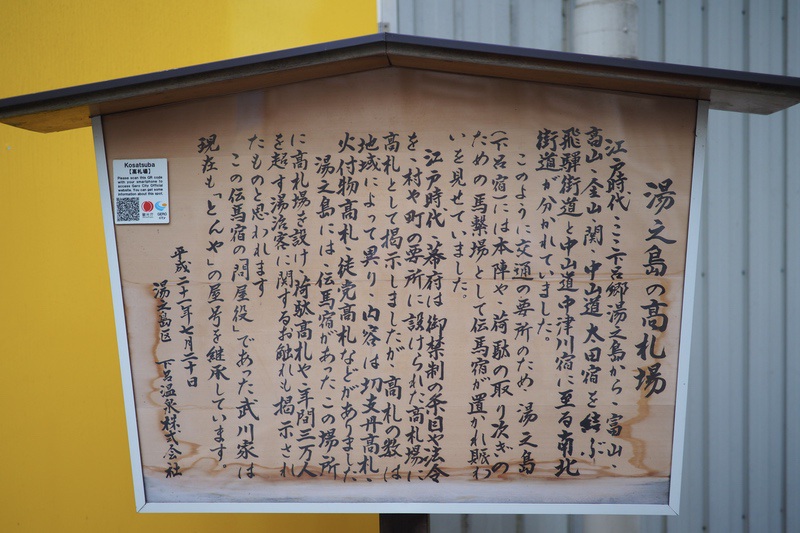 湯之島の高札場
江戸時代、ここ下呂郷湯之島から、富山、
高山、金山、関、中山道太田宿を結ぶ
飛騨街道と中山道中津川宿に至る南北
街道が分かれていました。
このように交通の要所のため、湯之島
(下呂宿)には本陣や、荷駄の取り次ぎの
ための馬繋場として伝馬宿が置かれ賑わ
いを見せていました。
江戸時代、幕府は御禁制の条目や法令
を、村や町の要所に設けられた高札場に
高札として掲示しましたが、高札の数は
地域によって異り、内容は切支丹高札、
火付物高札、徒党高札などがありました
湯之島には、伝馬宿があったこの場所
に高札場を設け、荷駄高札や、年間三万人
を超す湯治客に関するお触れも掲示され
たものと思われます
この伝馬宿の「問屋役」であった武川家は
現在も「とんや」の屋号を継承しています。
平成二十一年七月二十日
湯之島区 下呂温泉株式会社
Kosatsuba
【高札場】
Please scan this QR code
with your smartphone to
access Gero City Official
website. You can get some
information about this spot.